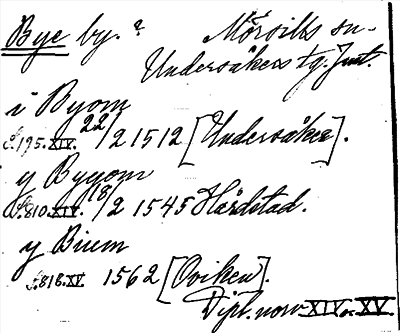 Bye by. ? Mörsills sn.
Undersåkers tg. Jmt.
i Byom
S.195.XIV. 22/2 1512 [Undersåker].
y Byyom
S.810.XIV. 18/2 1545 Hårdstad.
y Biem
S.818.XV. 1562 [Oviken].
Dipl. norv. XIV o. XV.